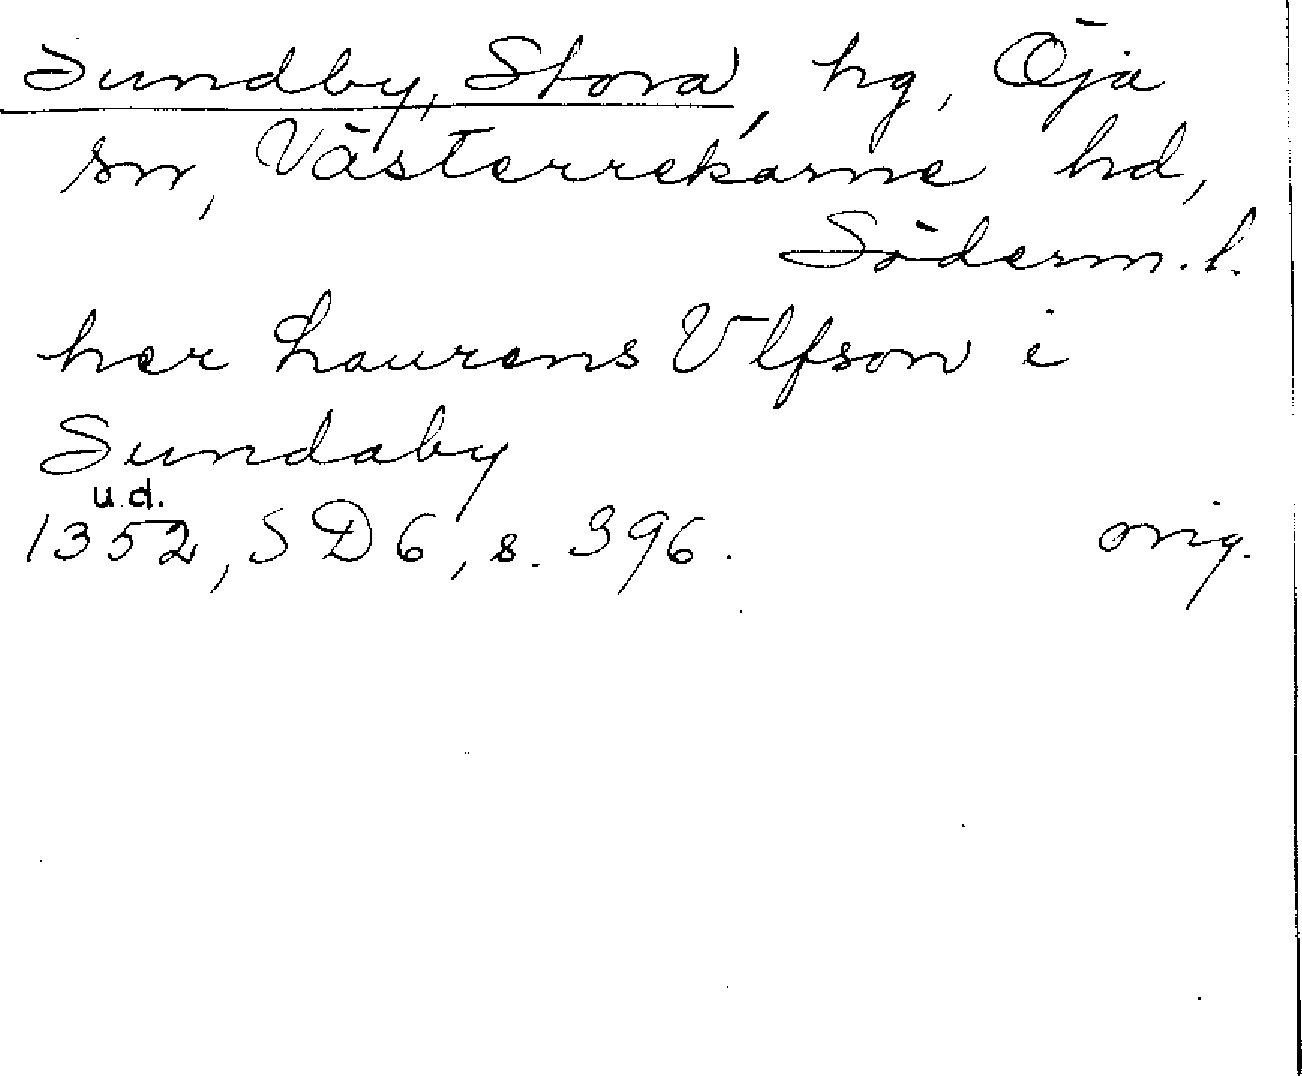 Sundby, Stora, hg, Öja
sn, Västerrekarne hd,
Söderm. l.
her Laurens Vlfson i
Sundaby
u.d.
1352, SD 6, s. 396. orig.